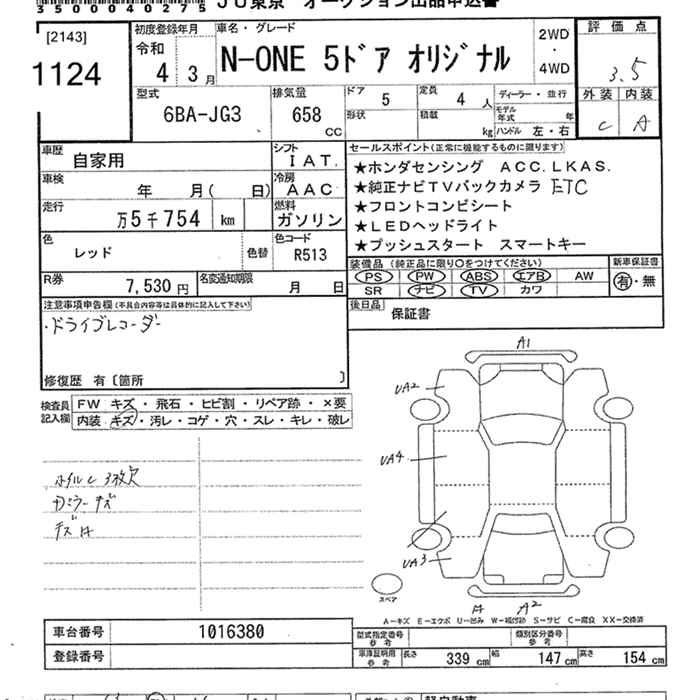 3 5 0 0 0 4 0 2 7 5 JU東京 オークション出品申込書
[2143]
1124
初度登録年月
令和
4 3月
車名・グレード
N-ONE 5ドア オリジナル
2WD
・
4WD
評価点
3.5
外装 内装
C A
型式
6BA-JG3
排気量
658
CC
ドア 5
定員 4 人
形状
積載 kg
ディーラー・並行
モデル年式 年
ハンドル 左・右
車歴 自家用
シフト IAT.
車検 年 月( 日)
冷房 AAC
走行 万5千754 km
燃料 ガソリン
色 レッド
色替
色コード R513
R券 7,530円
名変通知期限 月 日
セールスポイント(正常に機能するものに限ります)
★ホンダセンシング ACC.LKAS.
★純正ナビTVバックカメラ ETC
★フロントコンビシート
★LEDヘッドライト
★プッシュスタート スマートキー
装備品(純正品に限り○をつけてください)
PS PW ABS エアB AW
SR ナビ TV カワ
新車保証書
有・無
後日品 保証書
注意事項申告欄(不具合内容等は具体的に記入して下さい)
・ドライブレコーダー
修復歴 有〔箇所 〕
検査員記入欄
FW キズ・飛石・ヒビ割・リペア跡・×要
内装 キズ・汚レ・コゲ・穴・スレ・キレ・破レ
ホイルC 3枚欠
Dミラーキズ
A1
UA2
UA4
UA3
A A2
スペア
A-キズ E-エクボ U-凹み W-補修跡 S-サビ C-腐食 XX-交換済
車台番号 1016380
登録番号
型式指定番号 参考
類別区分番号 参考
車庫証明用 参考
長さ 339 cm 幅 147 cm 高さ 154 cm
軽自動車